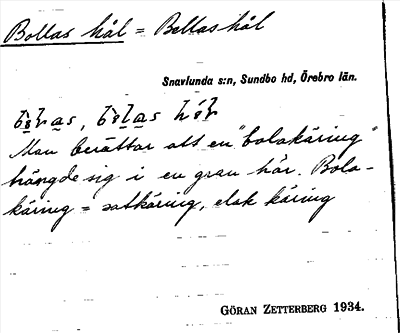 Bollas hål = Bollas hål
Snavlunda s:n, Sundbo hd, Örebro län.
Man berättar att en "bolakäring"
hängde sig i en gran här. Bola-
käring = satkäring, elak käring
GÖRAN ZETTERBERG 1934.